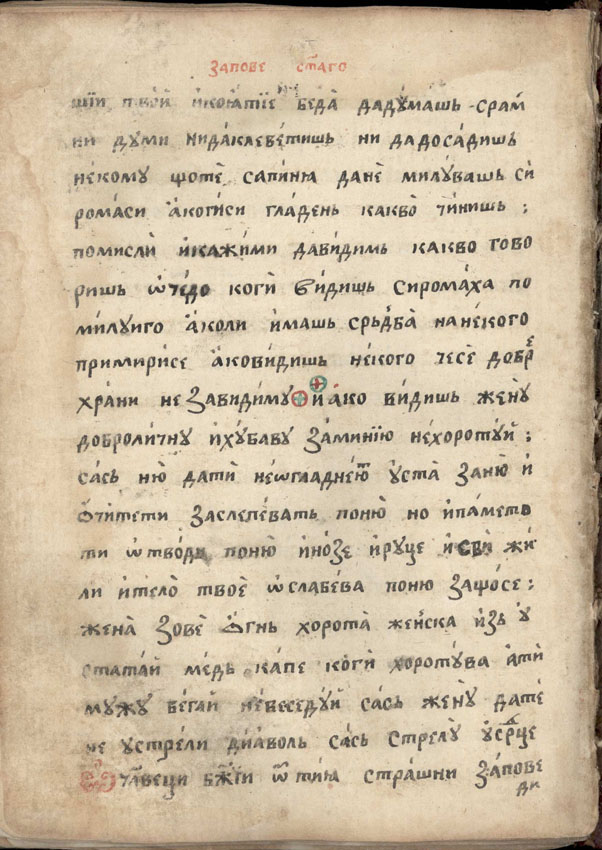 ЗАПОВЕ СТ҃АГО
ТВОЙ БЕДА̀ ДАДꙊ́МАШЬ СРАМ
НИ ДꙊМИ НИДА́КЛЕВЕ́ТИШЬ НИ ДАДОСА́ДИШЬ
НЕ́КОМꙊ ЩОТѐ САПИ́НЮ ДАНѐ МИЛꙊ́ВАШЬ СИ́
РОМА́СИ А́КОГИ́СИ ГЛА́ДЕНЬ КАКВО̀ ЧИ́НИШЬ ;
ПОМИСЛѝ И́КАЖИ́МИ ДАВИ́ДИМЬ КАКВО ГОВО
РИШЬ Ѡ҆ЧЕ́ДО КОГИ́ ВИ́ДИШЬ СИРОМА́ХА ПО
МИ́ЛꙊИГО А́КОЛИ И́МАШЬ СРЬДБА̀ НАНЕ́КОГО
ПРИМИРИ́СЕ А́КОВИ́ДИШЬ НЕ́КОГО ЧЕСѐ ДОБРЕ́
ХРА́НИ НЕ ЗАВИДИМꙊ И А́КО ВИ́ДИШЬ ЖЕ́НꙊ
ДОБРОЛИ́ЧНꙊ И́ХꙊБАВꙊ ЗАМИНІ́Ю НЕХОРОТꙊ́Й ;
САСЬ НЮ̀ ДАТѝ НЕѠГЛАДНЕ́Ю Т ꙊСТА̀ ЗАНЮ̀ И́
Ѻ҆ЧИТЕТИ ЗАСЛЕПЕ́ВАТЬ ПОНЮ̀ НО И́ПА́МЕТЬ
ТИ Ѡ҆ТВО́ДИ ПОНЮ̀ И́НО́ЗЕ И́РꙊЦЕ И́СВИ́ ЖИ́
ЛИ И́ТЕЛО̀ ТВОѐ Ѡ҆СЛАБЕ́ВА ПОНЮ̀ ЗАЩО́СЕ ;
ЖЕНА̀ ЗОВѐ Ѻ́ГНЬ ХОРОТА̀ ЖЕ́НСКА И́ЗЬ Ꙋ́
СТАТА́Й МЕДЬ КА́ПЕ КОГИ́ ХОРОТꙊ́ВА А́ТИ́
МꙊ́ЖꙊ БЕГА́Й НЕВЕСЕДꙊ́Й САСЬ ЖЕНꙊ̀ ДАТЕ́
НЕ ꙊСТРЕ́ЛИ ДИА́ВОЛЬ САСЬ СТРЕЛꙊ̀ Ꙋ́СРЦЕ
БЖ҃ІИ Ѿ ТИ́Ю СТРА́ШНИ ЗА́ПОВЕ
ДИ